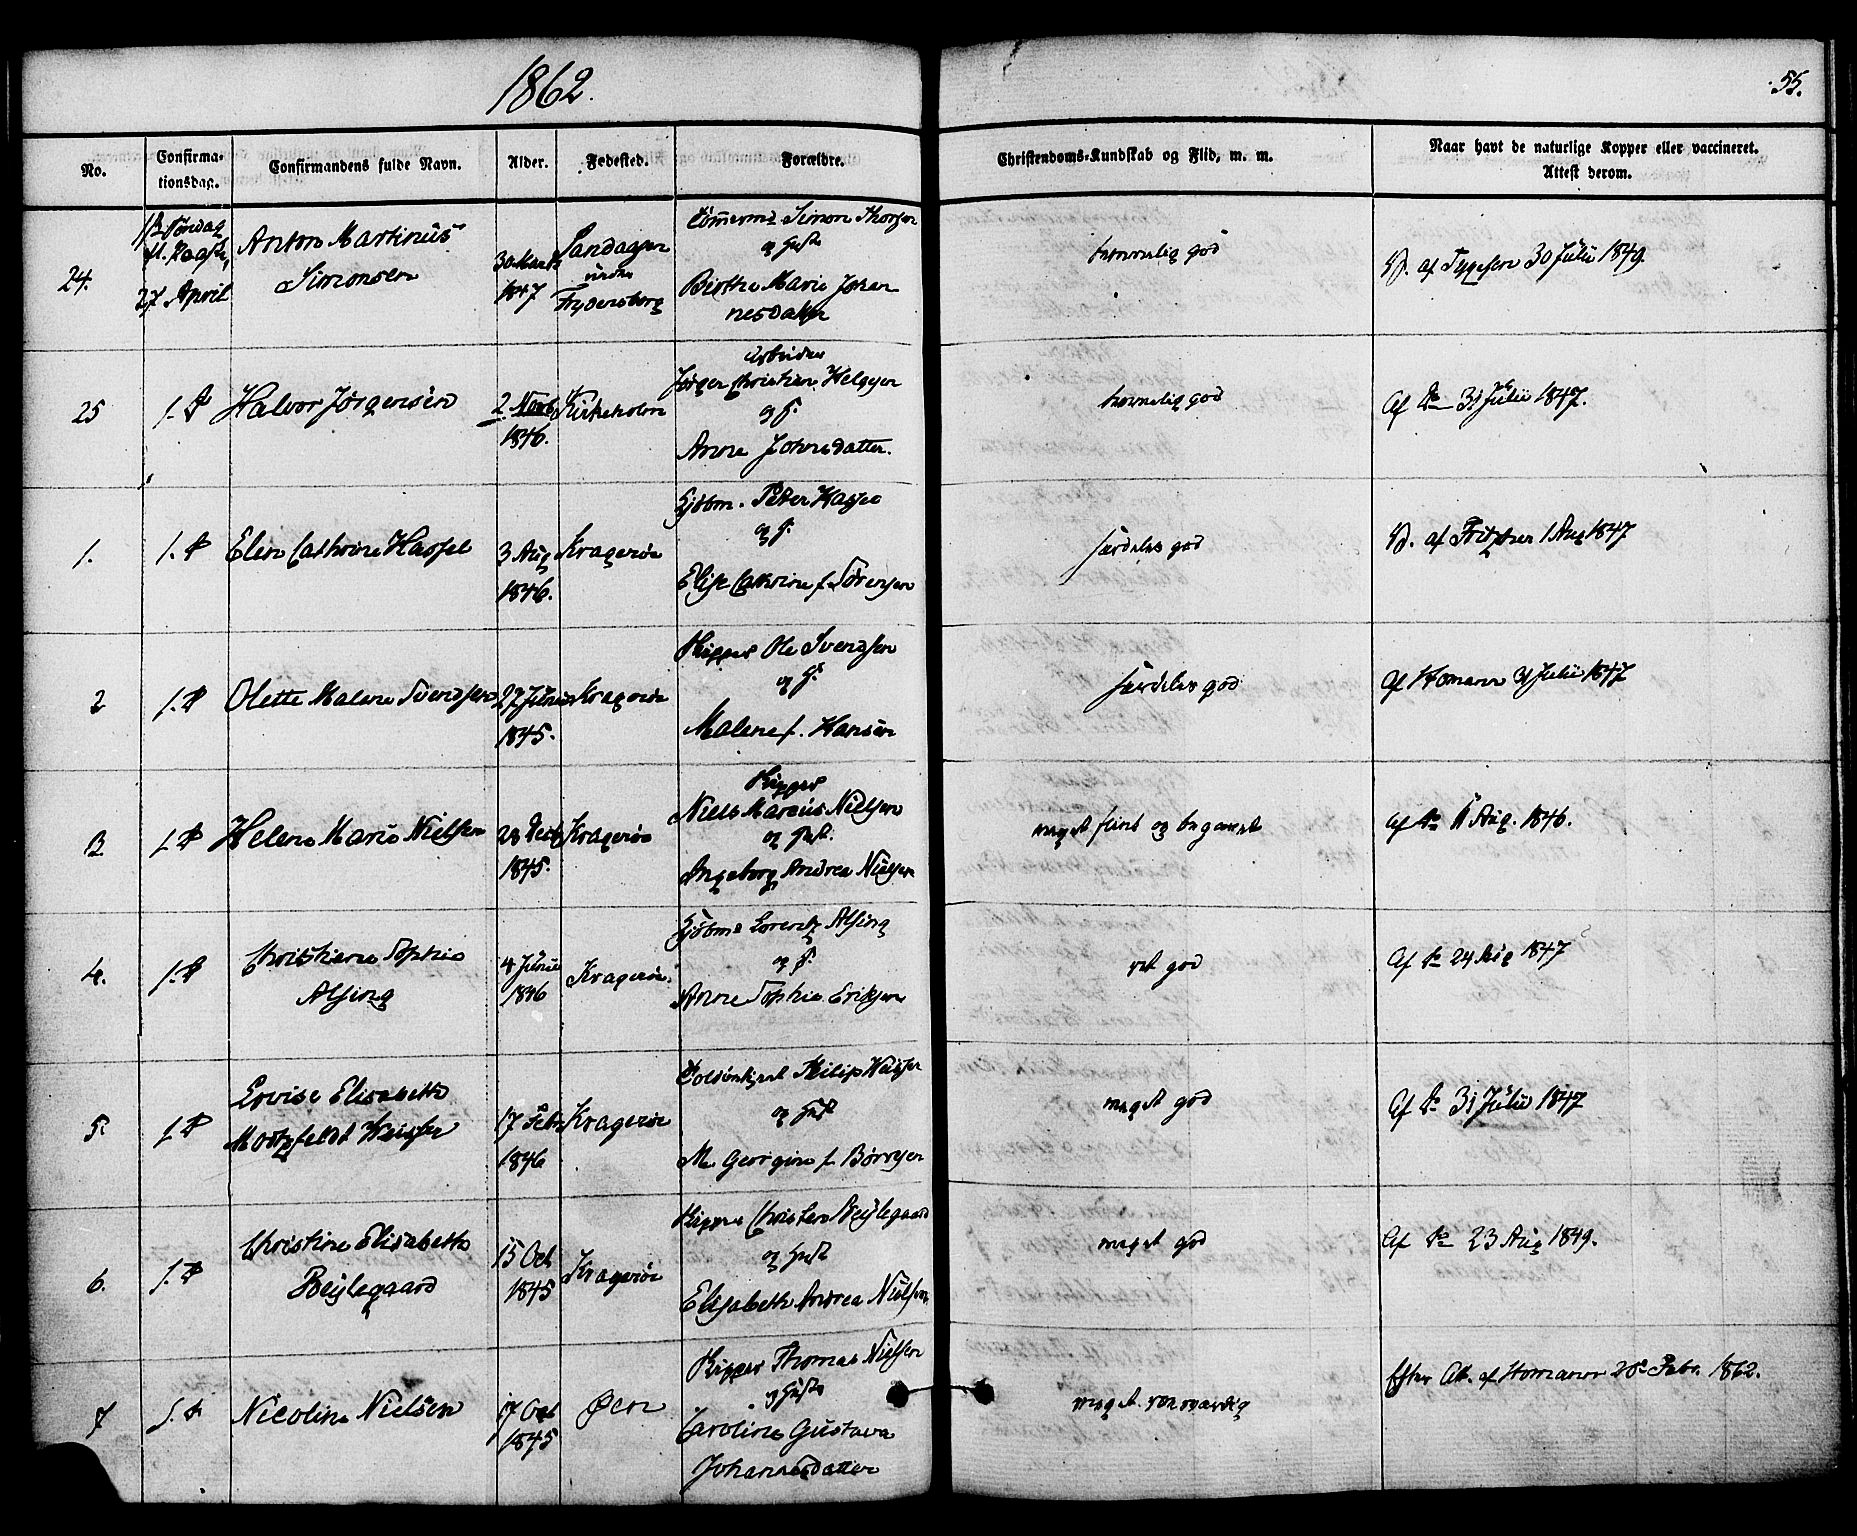 1862.
55.
No.
Confirma-
tionsdag.
Confirmandens fulde Navn.
Alder.
Fødested.
Forældre.
Christendoms-Kundskab og Flid, m. m.
Naar havt de naturlige Kopper eller vaccineret.
Attest derom.
24.
1ste Søndag
27 April
Anton Martinus
Simonsen
30 Marts
1847
Sandaasen
under
Frydensborg
Simon Thorsen
og Hust
Birthe Marie Johan
nesdatter
temmelig god
V. af Tygesen 30 Julii 1849.
25
Halvor Jørgensen
2 Novb
1846.
Kirkeholm
Arbeider
Jørgen Christian Helgesen
og H.
Anne Johnsdatter.
temmelig god
Af do 31 Julii 1847.
1.
Elen Cathrine Hassel
3 Aug
1846.
Kragerøe
Sjöbm. Peter Hassel
og H.
Elise Cathrine f. Sørensen
særdeles god
V. af Fritzner 1 Aug 1847
2
Olette Malene Svendsen
27 Junii
1845.
Kragerøe
Skipper Ole Svendsen
og H.
Malene f. Hansen
særdeles god
af Homann 31 Julii 1847
3
Helene Marie Nielsen
28 Decb
1845.
Kragerøe
Skipper
Niels Marcus Nielsen
og Hust.
Ingeborg Andrea Nielsen
meget flink og begavet
af do 11 Aug. 1846.
4.
Christiane Sophie
Alsing
4 Junii
1846
Kragerøe
Sjöbm Lorentz Alsing
og H.
Anne Sophie Eriksen
ret god
Af do 24 Aug 1847
5.
Lovise Elisabeth
Motzfeldt Weisser
17 Febr
1846
Kragerøe
Philip Weisser
og Hust
M. Georgine f. Børresen
meget god
Af do 31 Julii 1847
6.
Christine Elisabeth
Beylegaard
15 Oct
1845
Kragerøe
Skipper Christen Beylegaard
og Hust
Elisabeth Andrea Nielsen
meget god
Af do 23 Aug 1849.
7
Nicoline Nielsen
17 Oct
1845
Øen
Skipper Thomas Nielsen
og Hust
Caroline Gustava
Johannesdatter
meget roesværdig
Efter Att. af Homann 20de Febr. 1862.